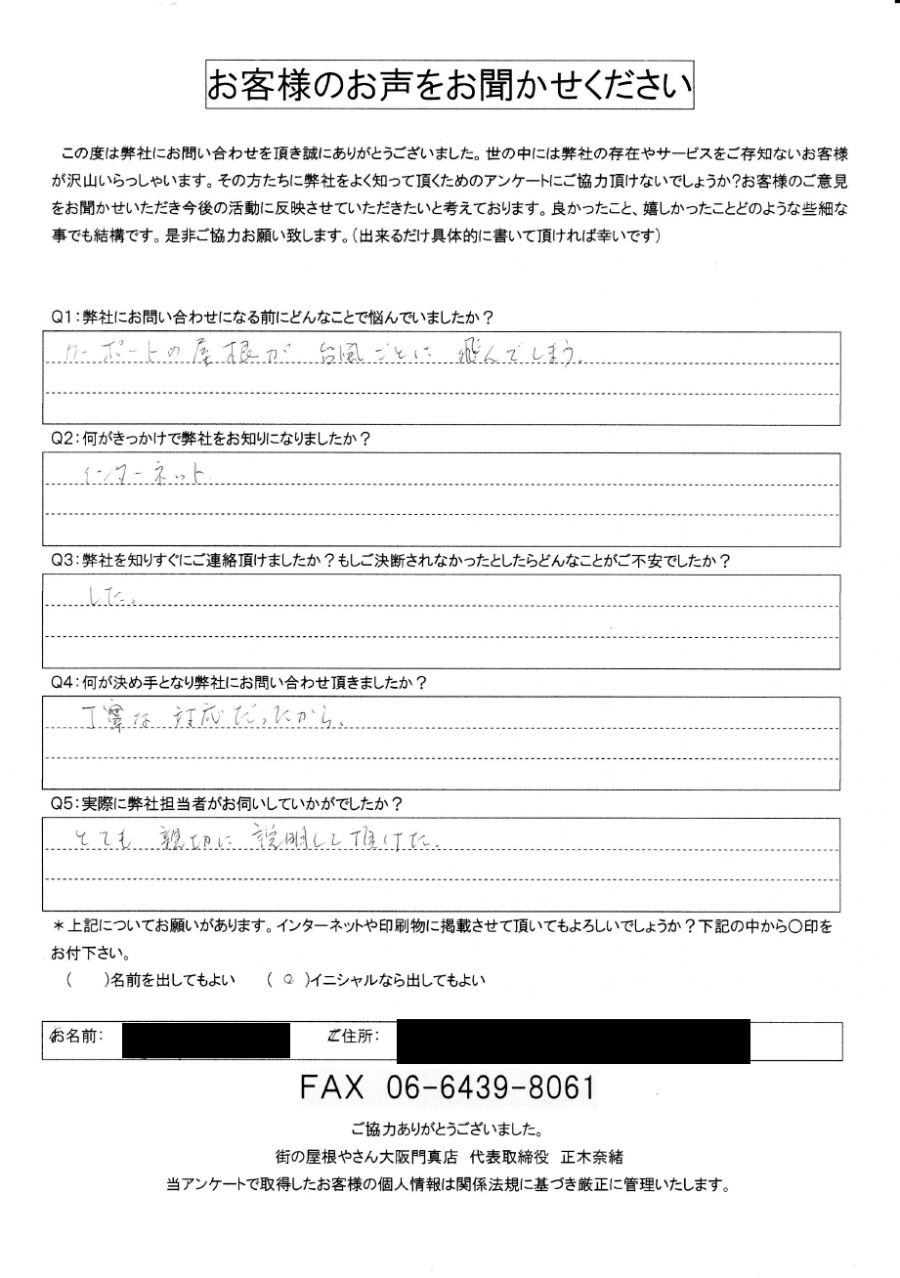 お客様のお声をお聞かせください
この度は弊社にお問い合わせを頂き誠にありがとうございました。世の中には弊社の存在やサービスをご存知ないお客様
が沢山いらっしゃいます。その方たちに弊社をよく知って頂くためのアンケートにご協力頂けないでしょうか?お客様のご意見
をお聞かせいただき今後の活動に反映させていただきたいと考えております。良かったこと、嬉しかったことどのような些細な
事でも結構です。是非ご協力お願い致します。(出来るだけ具体的に書いて頂ければ幸いです)
Q1:弊社にお問い合わせになる前にどんなことで悩んでいましたか?
カーポートの屋根が 台風ごとに 飛んでしまう。
Q2:何がきっかけで弊社をお知りになりましたか?
インターネット
Q3:弊社を知りすぐにご連絡頂けましたか?もしご決断されなかったとしたらどんなことがご不安でしたか?
した。
Q4:何が決め手となり弊社にお問い合わせ頂きましたか?
丁寧な 対応だったから。
Q5:実際に弊社担当者がお伺いしていかがでしたか?
とても 親切に 説明して頂けた。
*上記についてお願いがあります。インターネットや印刷物に掲載させて頂いてもよろしいでしょうか?下記の中から〇印を
お付下さい。
( )名前を出してもよい (○)イニシャルなら出してもよい
お名前: ご住所:
FAX 06-6439-8061
ご協力ありがとうございました。
街の屋根やさん大阪門真店 代表取締役 正木奈緒
当アンケートで取得したお客様の個人情報は関係法規に基づき厳正に管理いたします。